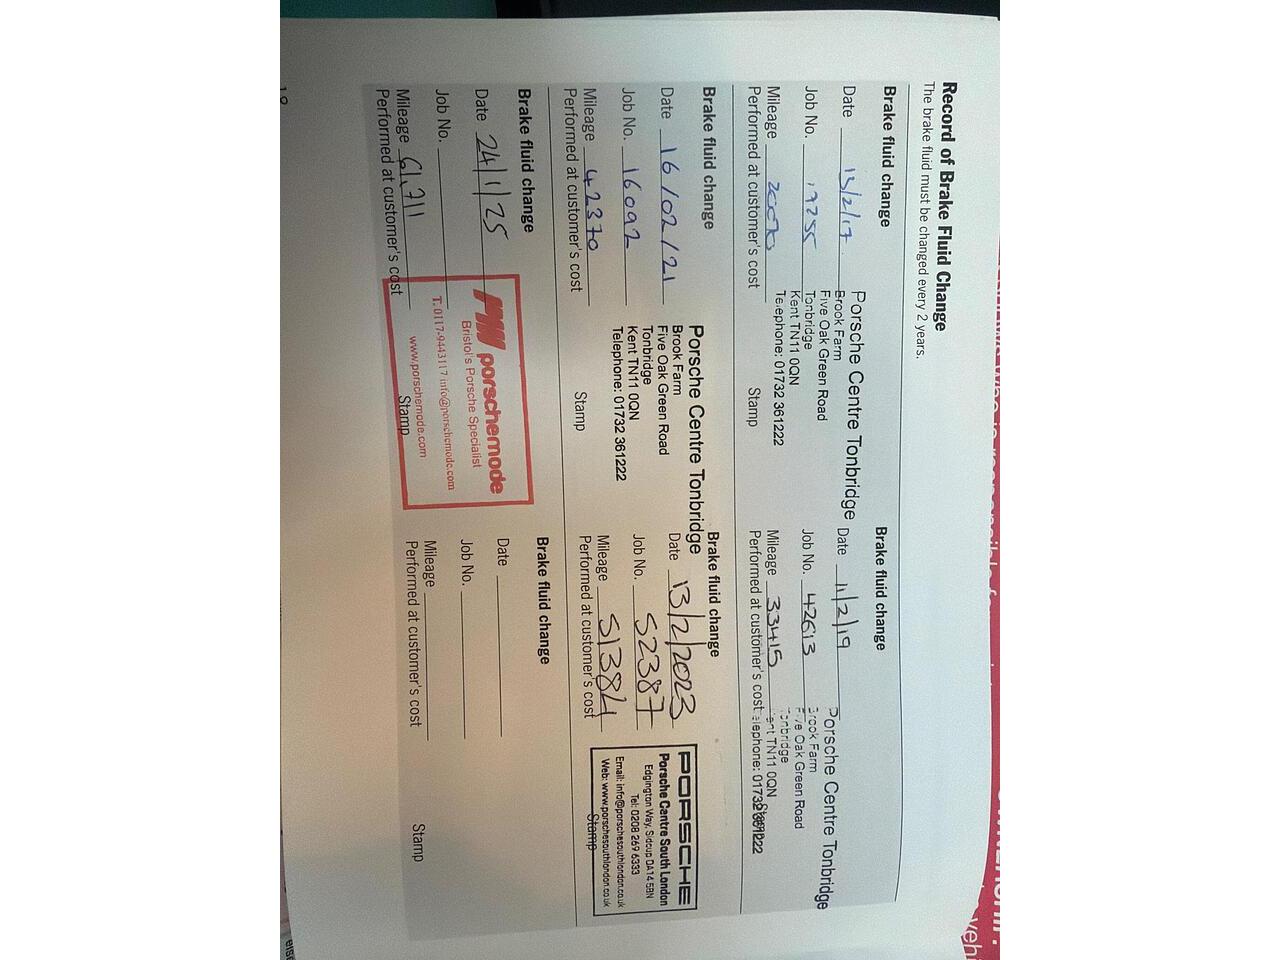 Record of Brake Fluid Change
The brake fluid must be changed every 2 years.
Brake fluid change
Date 13/2/17
Job No.
Mileage
Performed at customer's cost
Porsche Centre Tonbridge
Brook Farm
Five Oak Green Road
Tonbridge
Kent TN11 0QN
Telephone: 01732 361222
Stamp
Brake fluid change
Date 11/2/19
Job No. 42613
Mileage 33415
Performed at customer's cost
Porsche Centre Tonbridge
Brook Farm
Five Oak Green Road
Tonbridge
Kent TN11 0QN
Telephone: 01732 361222
Stamp
Brake fluid change
Date 16/02/21
Job No. 16092
Mileage 42370
Performed at customer's cost
Porsche Centre Tonbridge
Brook Farm
Five Oak Green Road
Tonbridge
Kent TN11 0QN
Telephone: 01732 361222
Stamp
Brake fluid change
Date 13/2/2023
Job No. 52387
Mileage 51384
Performed at customer's cost
PORSCHE
Porsche Centre South London
Edgington Way, Sidcup DA14 5BN
Tel: 0208 269 6333
Email: info@porschesouthlondon.co.uk
Web: www.porschesouthlondon.co.uk
Stamp
Brake fluid change
Date 24/1/25
Job No.
Mileage 61,711
Performed at customer's cost
porschemode
Bristol's Porsche Specialist
T. 0117-9443117 info@porschemode.com
www.porschemode.com
Stamp
Brake fluid change
Date
Job No.
Mileage
Performed at customer's cost
Stamp